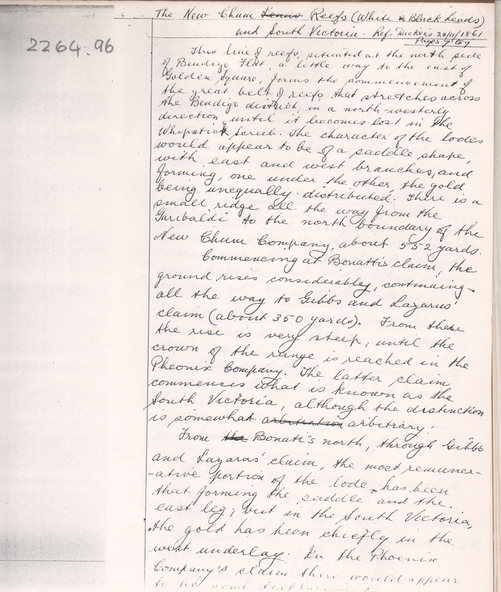 2264.96
The New Chum Reefs (White & Black Leads)
and South Victoria - Ref. Dicker's 20/11/1861
This line of reefs, situated at the north side
of Bendigo Flat, a little way to the east of
Golden Square, forms the commencement of
the great belt of reefs that stretches across
the Bendigo district, in a north-westerly
direction, until it becomes lost in the
Whipstick Scrub. The character of the lodes
would appear to be of a saddle shape,
with east and west branches, and
forming, one under the other, the gold
being unequally distributed. There is a
small ridge all the way from the
Garibaldi to the north boundary of the
New Chum Company, about 552 yards.
Commencing at Bonatti's claim, the
ground rises considerably, continuing
all the way to Gibbs and Lazarus'
claim (about 350 yards). From there
the rise is very steep, until the
crown of the range is reached in the
Pheonix Company. The latter claim
commences what is known as the
South Victoria, although the distinction
is somewhat arbitration arbitrary.
From the Bonati's north, through Gibbs
and Lazarus' claim, the most remuner-
-ative portion of the lode has been
that forming the saddle and the
east leg; but in the South Victoria,
the gold has been chiefly in the
west underlay. In the Phoenix
Company's claim there would appear
to be some